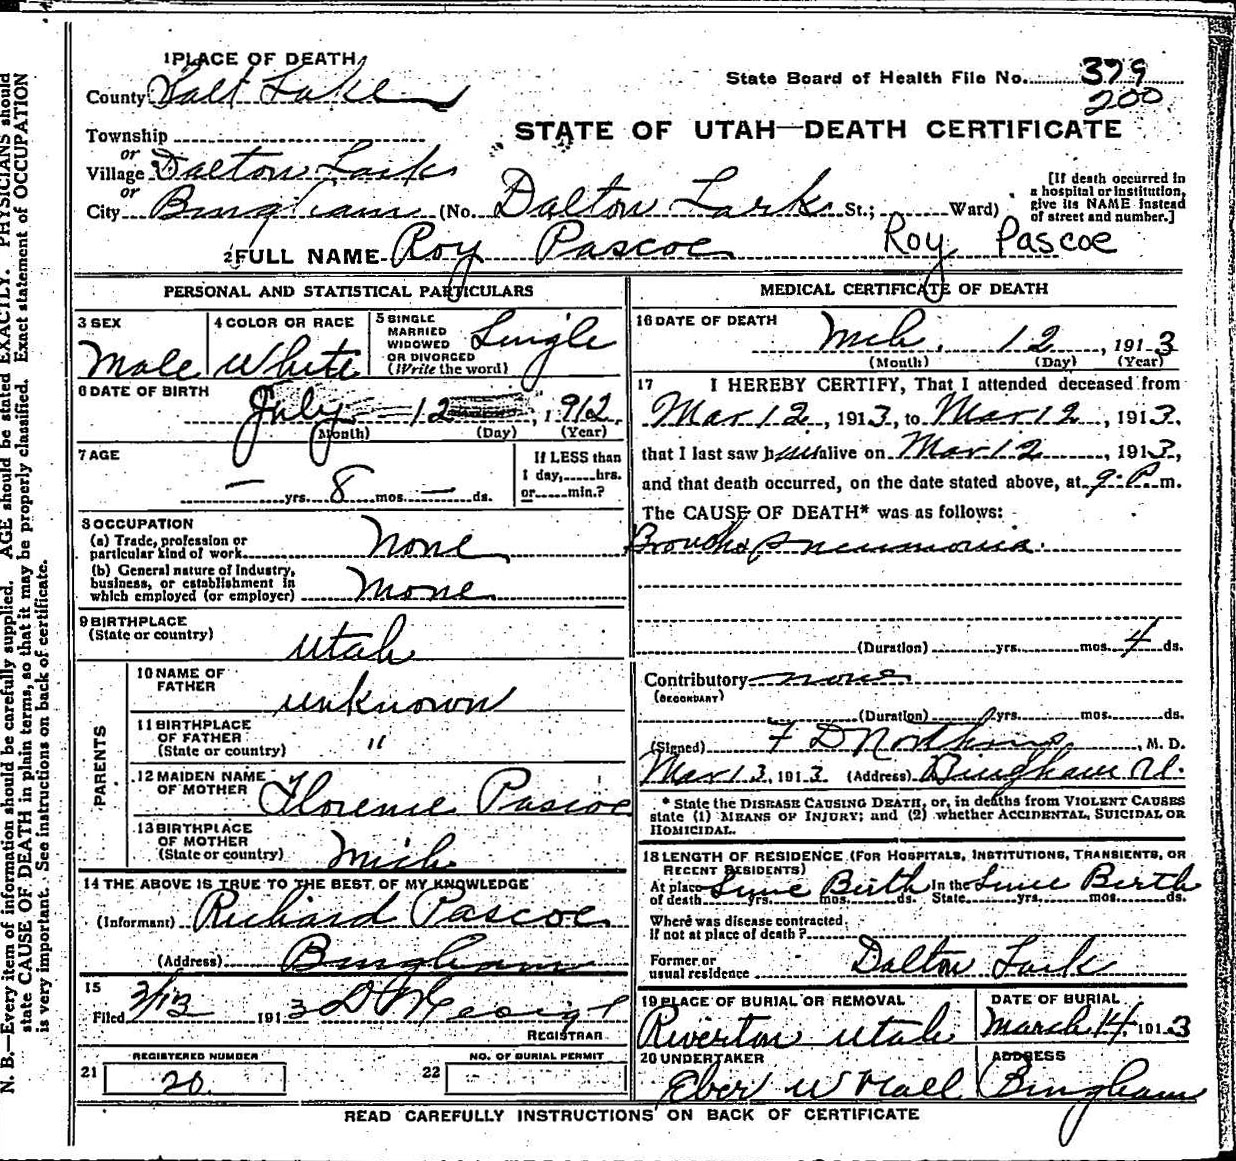 1 PLACE OF DEATH
State Board of Health File No. 379
200
County Salt Lake
STATE OF UTAH—DEATH CERTIFICATE
Township
or
Village Dalton Lark
or
City Bingham (No. Dalton Lark St.; Ward)
[If death occurred in a hospital or institution, give its NAME instead of street and number.]
2 FULL NAME Roy Pascoe Roy Pascoe
PERSONAL AND STATISTICAL PARTICULARS
3 SEX
Male
4 COLOR OR RACE
White
5 SINGLE MARRIED WIDOWED OR DIVORCED (Write the word)
Single
6 DATE OF BIRTH
July 12, 1912
(Month) (Day) (Year)
7 AGE
— yrs. 8 mos. — ds.
If LESS than 1 day, hrs. or min.?
8 OCCUPATION
(a) Trade, profession or
particular kind of work None
(b) General nature of Industry,
business, or establishment in
which employed (or employer) None
9 BIRTHPLACE
(State or country)
Utah
PARENTS
10 NAME OF FATHER
unknown
11 BIRTHPLACE OF FATHER
(State or country) "
12 MAIDEN NAME OF MOTHER Florence Pascoe
13 BIRTHPLACE OF MOTHER
(State or country) Mich
14 THE ABOVE IS TRUE TO THE BEST OF MY KNOWLEDGE
(Informant) Richard Pascoe
(Address) Bingham
15
Filed 3/13 1913
REGISTRAR
REGISTERED NUMBER
21 20
NO. OF BURIAL PERMIT
22
MEDICAL CERTIFICATE OF DEATH
16 DATE OF DEATH
Mch. 12, 1913
(Month) (Day) (Year)
17 I HEREBY CERTIFY, That I attended deceased from
Mar 12, 1913, to Mar 12, 1913,
that I last saw him alive on Mar 12, 1913,
and that death occurred, on the date stated above, at 9 P. m.
The CAUSE OF DEATH* was as follows:
Broncho pneumonia.
(Duration) yrs. mos. 4 ds.
Contributory none
(SECONDARY)
(Duration) yrs. mos. ds.
(Signed) F D , M. D.
Mar 13, 1913 (Address) Bingham U.
* State the DISEASE CAUSING DEATH, or, in deaths from VIOLENT CAUSES
state (1) MEANS OF INJURY; and (2) whether ACCIDENTAL, SUICIDAL OR
HOMICIDAL.
18 LENGTH OF RESIDENCE (FOR HOSPITALS, INSTITUTIONS, TRANSIENTS, OR
RECENT RESIDENTS)
At place Since Birth In the Since Birth
of death yrs. mos. ds. State yrs. mos. ds.
Where was disease contracted
If not at place of death?
Former or
usual residence Dalton Lark
19 PLACE OF BURIAL OR REMOVAL
Riverton Utah
DATE OF BURIAL
March 14, 1913
20 UNDERTAKER
Eber W Hall
ADDRESS
Bingham
READ CAREFULLY INSTRUCTIONS ON BACK OF CERTIFICATE
N. B.—Every item of information should be carefully supplied. AGE should be stated EXACTLY. PHYSICIANS should
state CAUSE OF DEATH in plain terms, so that it may be properly classified. Exact statement of OCCUPATION
is very important. See instructions on back of certificate.